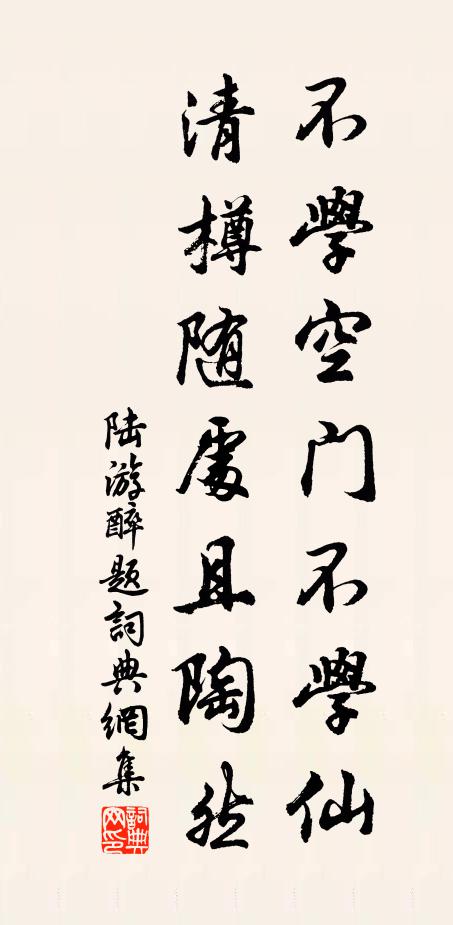 不學空門不學仙
清樽随處且陶然
陆游醉题詞典網集
詞典网印